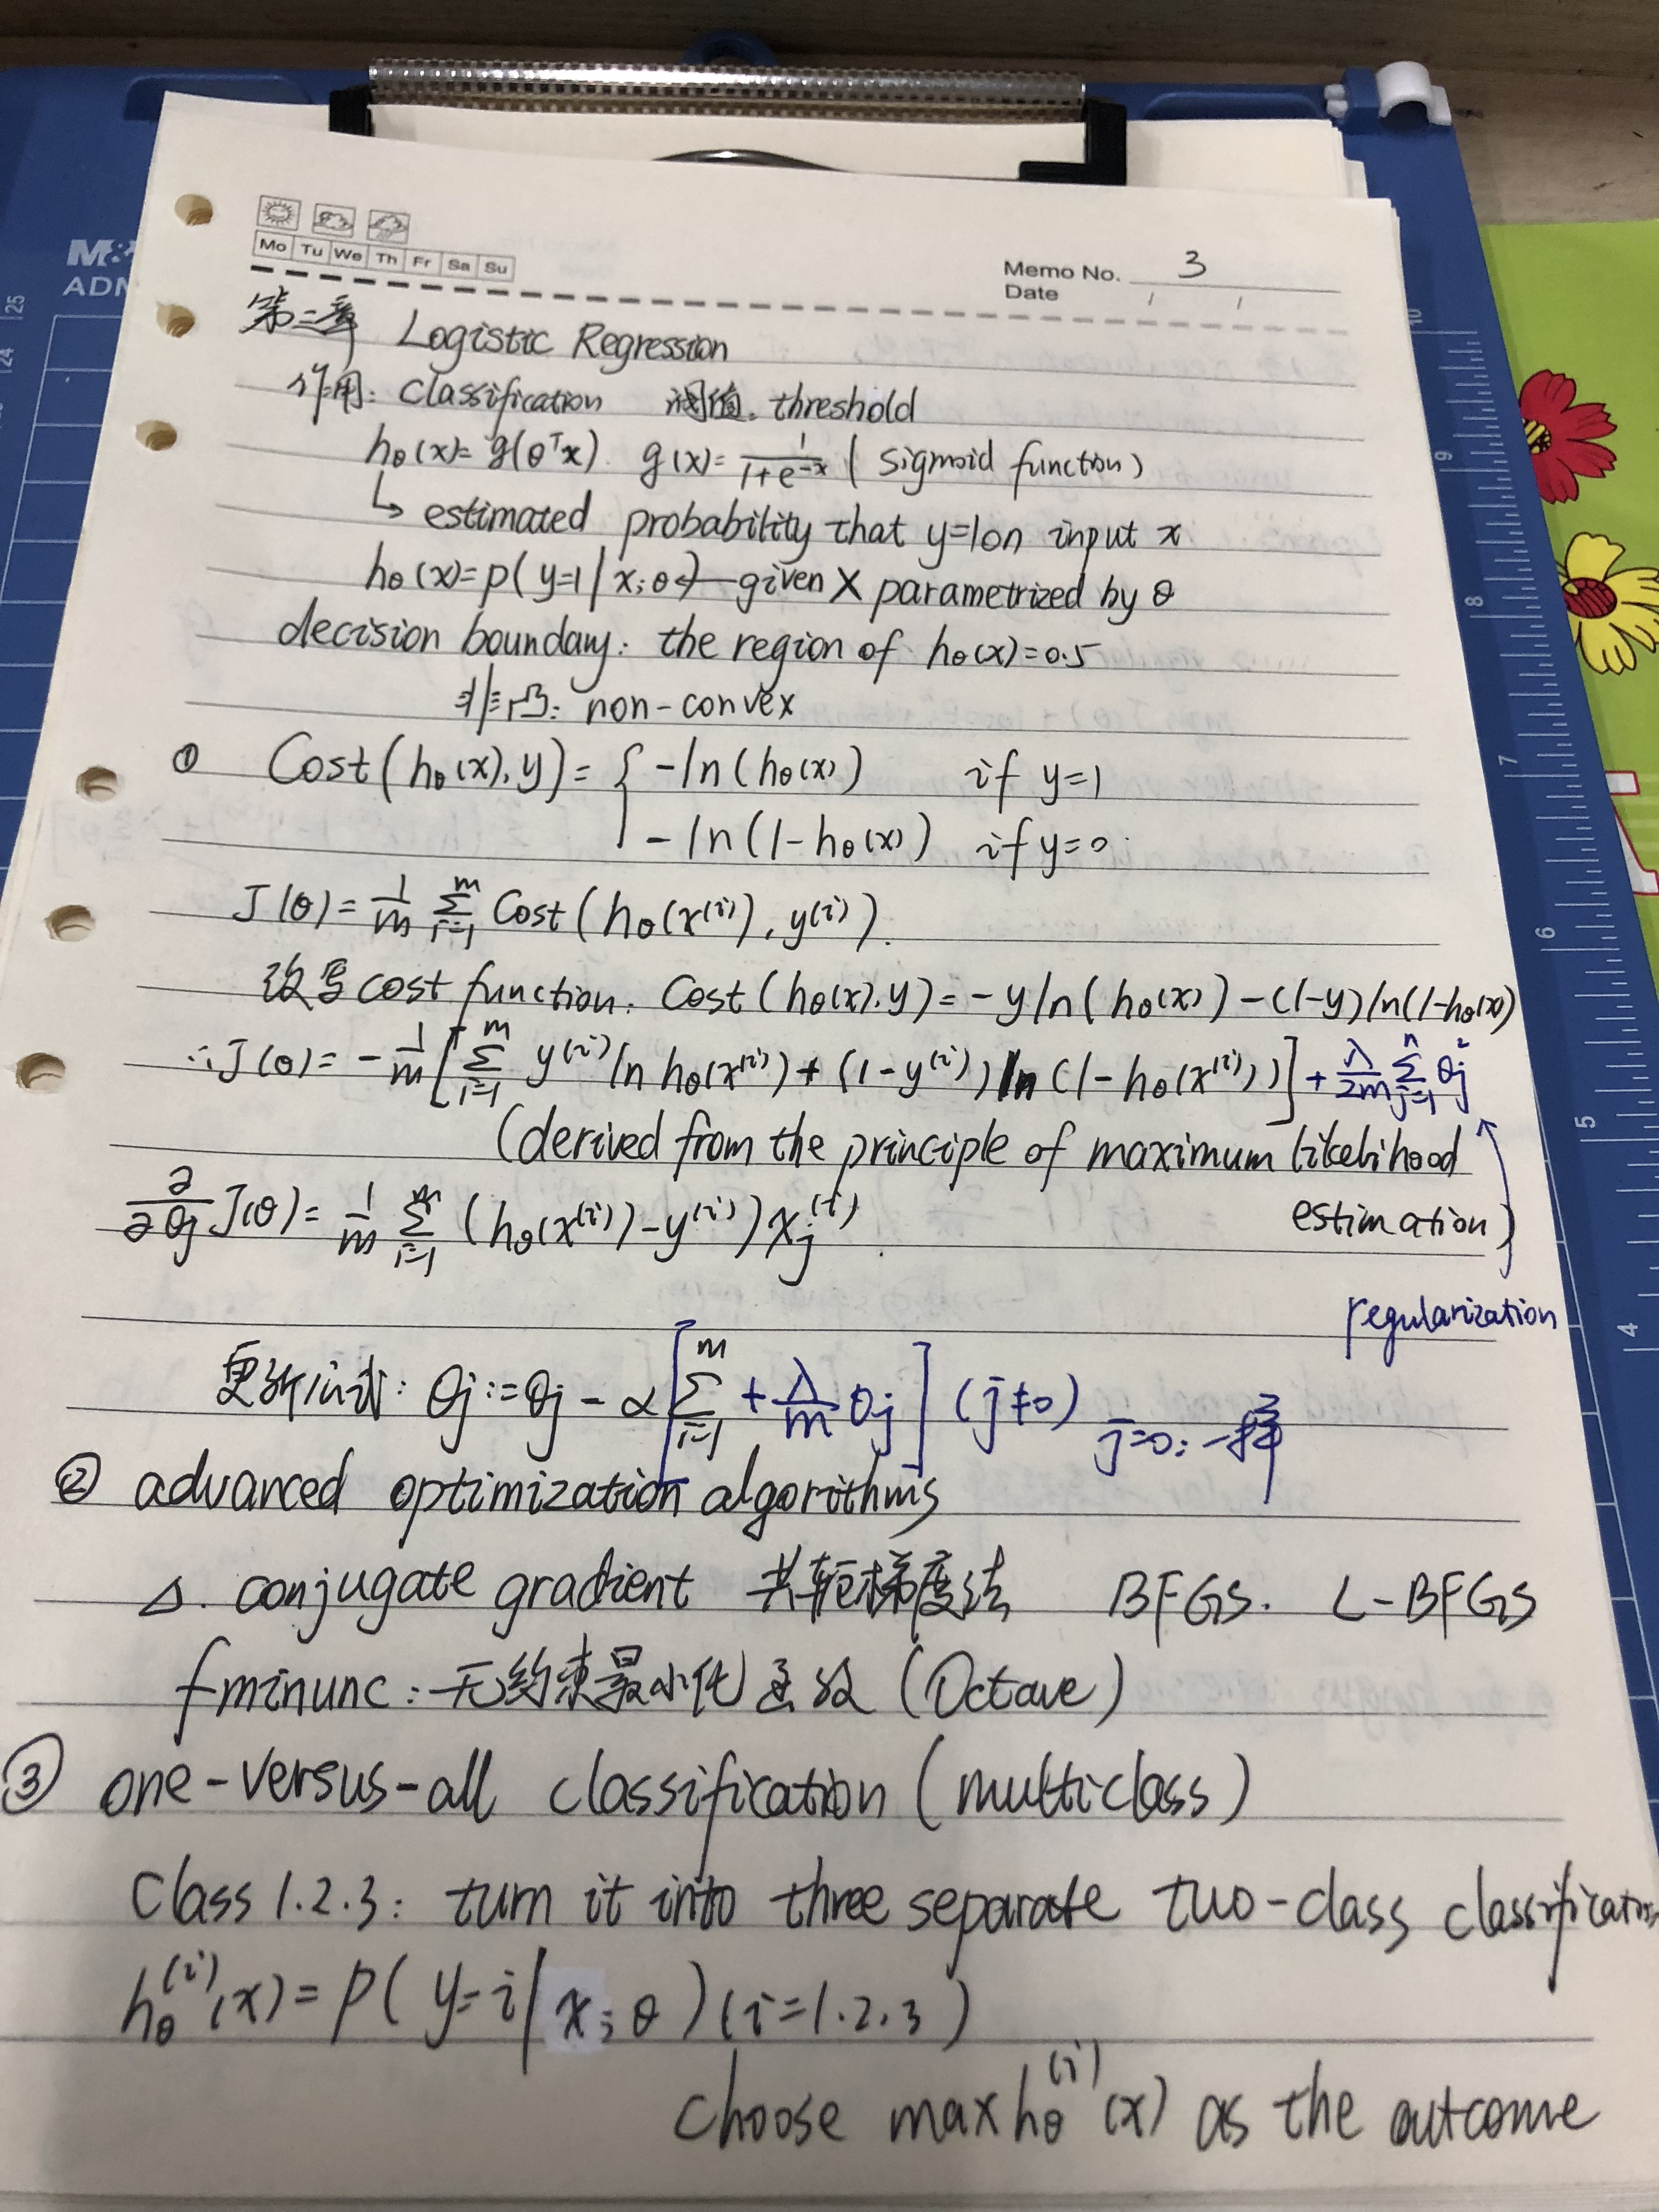 M&
ADN
Mo Tu We Th Fr Sa Su
Memo No. 3
Date / /
第三章 Logistic Regression
作用: classification 阈值. threshold
hθ(x)= g(θᵀx) g(x)= 1/(1+e^-x) ( sigmoid function)
↳ estimated probability that y=1 on input x
hθ(x)=p( y=1 | x;θ) ← given X parametrized by θ
decision boundary: the region of hθ(x)=0.5
非凸: non-convex
① Cost(hθ(x).y)= { -ln(hθ(x)) if y=1
-ln(1-hθ(x)) if y=0
J(θ)= 1/m Σ_{i=1}^{m} Cost(hθ(x⁽ⁱ⁾), y⁽ⁱ⁾).
改写cost function. Cost(hθ(x).y)=-yln(hθ(x))-(1-y)ln(1-hθ(x))
∴J(θ)= -1/m [Σ_{i=1}^{m} y⁽ⁱ⁾ln hθ(x⁽ⁱ⁾)+(1-y⁽ⁱ⁾)ln(1-hθ(x⁽ⁱ⁾))] + λ/2m Σ_{j=1}^{n} θj²
(derived from the principle of maximum likelihood
estimation)
∂/∂θj J(θ)= 1/m Σ_{i=1}^{m} (hθ(x⁽ⁱ⁾)-y⁽ⁱ⁾)xj⁽ⁱ⁾.
regularization
更新公式: θj:=θj-α[Σ_{i=1}^{m} + λ/m θj] (j≠0) j=0:一样
② advanced optimization algorithms
Δ. conjugate gradient 共轭梯度法 BFGS. L-BFGS
fminunc:无约束最小化函数(Octave)
③ one-versus-all classification(multiclass)
Class 1.2.3: turn it into three separate two-class classification
hθ⁽ⁱ⁾(x)=P( y=i | x;θ)(i=1.2.3)
choose max hθ⁽ⁱ⁾(x) as the outcome
25
24
10
9
8
7
6
5
4